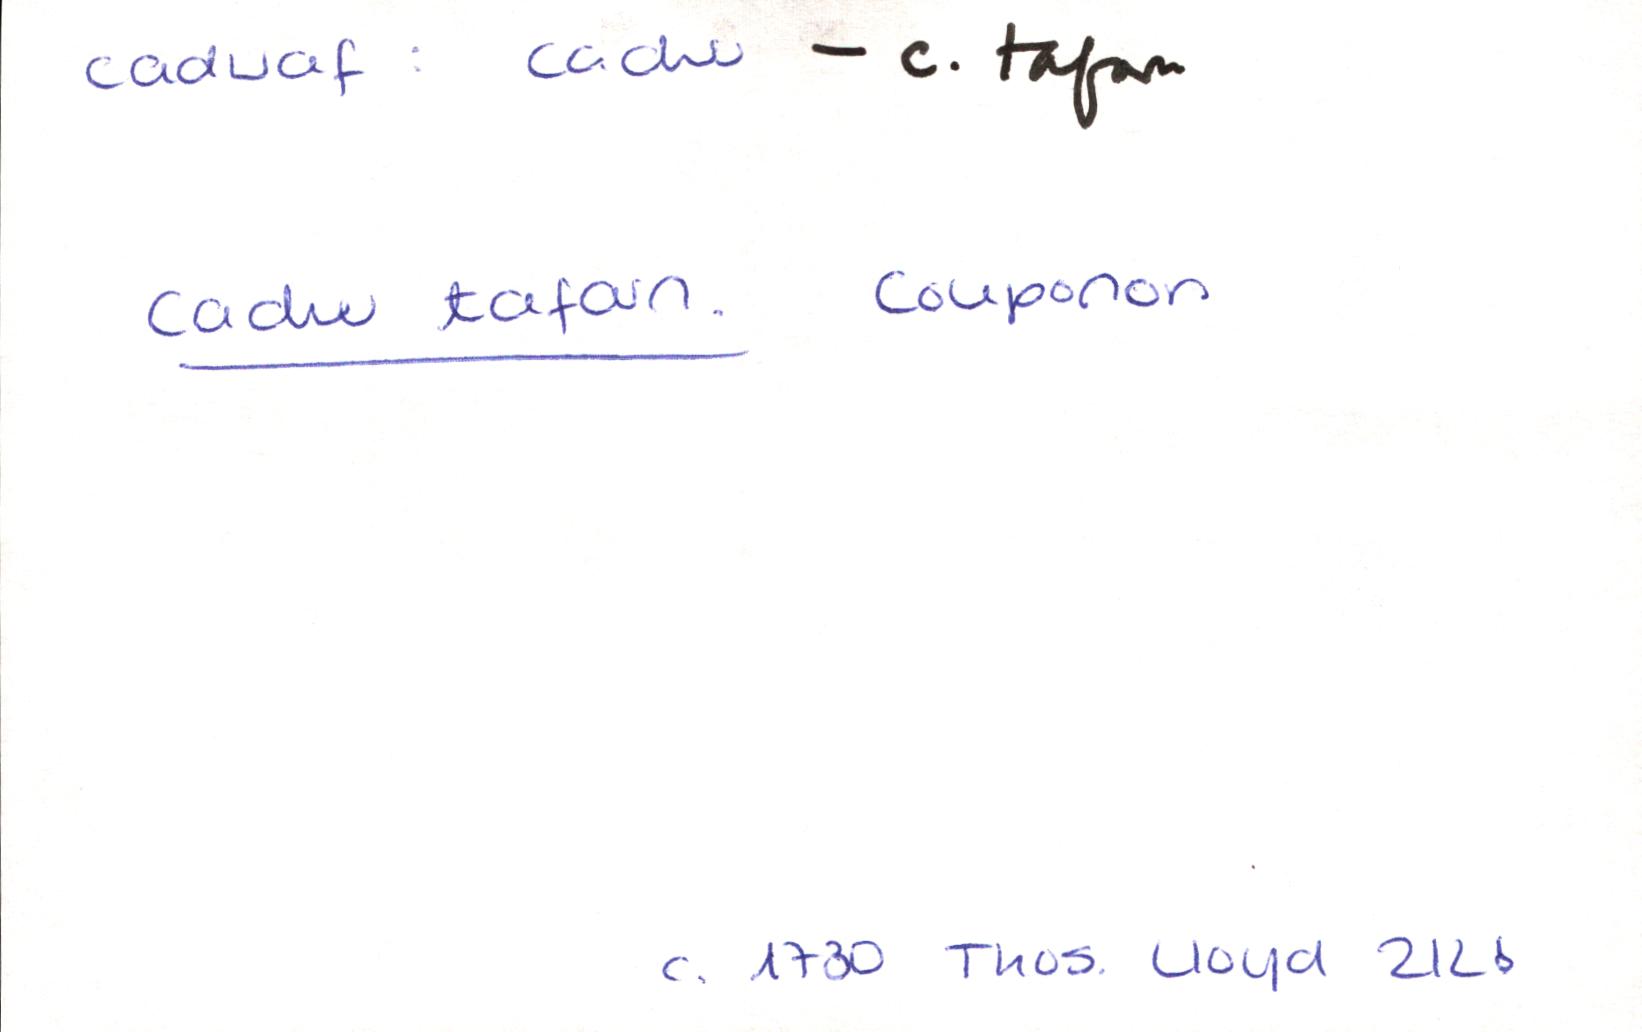 cadwaf : cadw – c. tafarn
Cadw tafarn. Couponor
c. 1730 Thos. Lloyd 212b